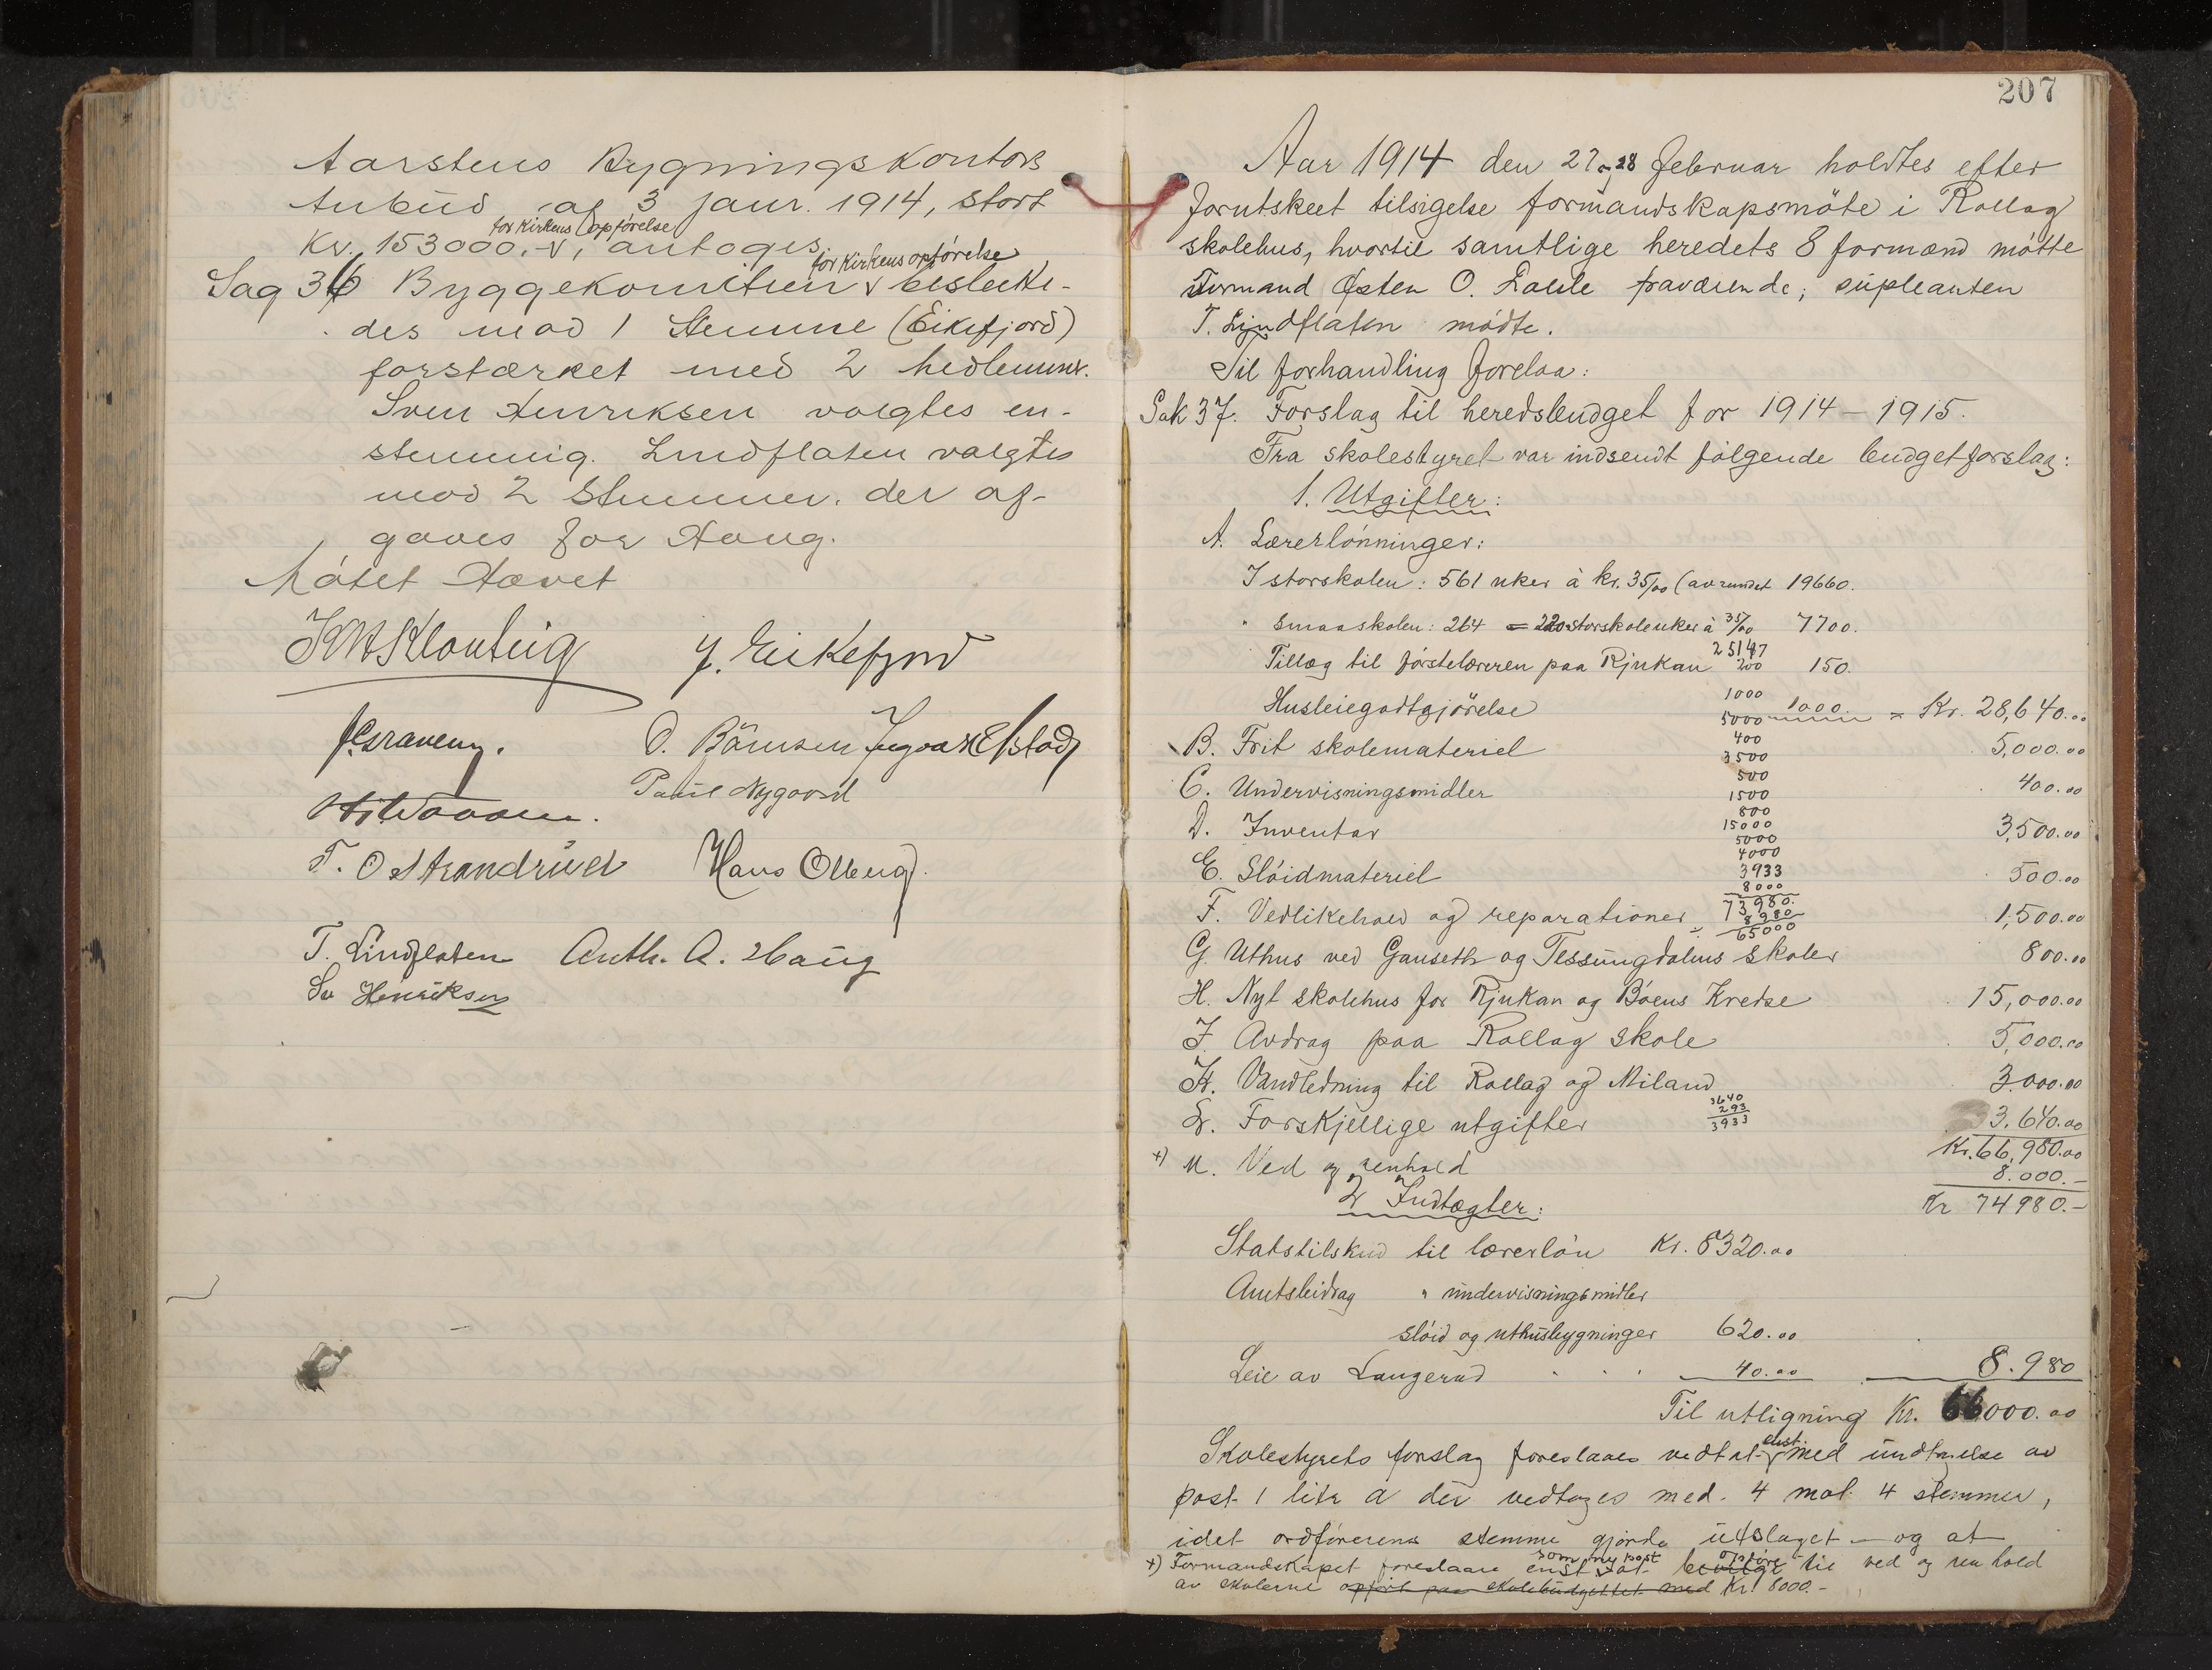 Aarstens Bygningskontors
Anbud af 3 Janr. 1914, stort
for Kirkens opførelse
Kr. 153000.-, antoges
for Kirkens opførelse
Sag 36 Byggekomiteen besluttedes
mod 1 Stemme (Eikefjord)
forstærket med 2 Medlemmer.
Sven Henriksen valgtes en-
stemmig. Lindflaten valgtes
mod 2 Stemmer. der af-
gaves for Haug.
Møtet Hævet
J. Eikefjord
O. Börnsen
Paul Nygaard
T. O Strandrud Hans Olberg.
T. Lindflaten Anth. A. Haug
Sv Henriksen
207
Aar 1914 den 27 og 28 februar holdtes efter
forutskeet tilsigelse formandskapsmøte i Rollag
skolehus, hvortil samtlige heredets 8 formænd møtte
Formand Østen O. fraværende; supleanten
T. Lindflaten mødte.
Til forhandling forelaa:
Sak 37. Forslag til heredsbudget for 1914 – 1915.
Fra skolestyret var indsendt følgende budgetforslag:
1. Utgifter:
A. Lærerlønninger:
I storskolen: 561 uker à kr. 35/00 (avrundet 19660.
" Smaaskolen: 264 = 220 storskoleuker à 35/00 7700.
25147
Tillæg til førstelæreren paa Rjukan 200 150.
1000
Husleiegodtgjørelse 5000 1000. = Kr. 28,640.00
400
B. Frit skolemateriel 3500 5,000.00
500
C. Undervisningsmidler 1500 400.00
800
D. Inventar 15000 3,500.00
5000
4000
E. Sløidmateriel 3933 500.00
8000
73980.
F. Vedlikehold og reparationer 8980 1,500.00
65000
G. Uthus ved Gauseth og Tessungdalens skoler 800.00
H. Nyt skolehus for Rjukan og Bøens Kredse 15,000.00
I. Avdrag paa Rollag skole 5,000.00
K. Vandledning til Rollag og Miland 3.000.00
3640
293
L. Forskjellige utgifter 3933 3.640.00
Kr. 66,980.00
+) M. Ved og renhold 8.000.-
Kr 74980.-
2 Indtægter:
Statstilskud til lærerløn Kr. 8320.00
Amtsbidrag " undervisningsmidler
sløid og uthusbygninger 620.00
Leie av Langerud . . . 40.00 8.980
Til utligning Kr. 66000.00
enst.
Skolestyrets forslag foreslaaes vedtat med undtagelse av
post 1 litr a der vedtages med 4 mot 4 stemmer,
idet ordførerens stemme gjorde utslaget – og at
som ny post opføre
+) Formandskapet foreslaar enst at bevilge til ved og renhold
av skolerne opført paa skolebudgettet med Kr. 8000.-